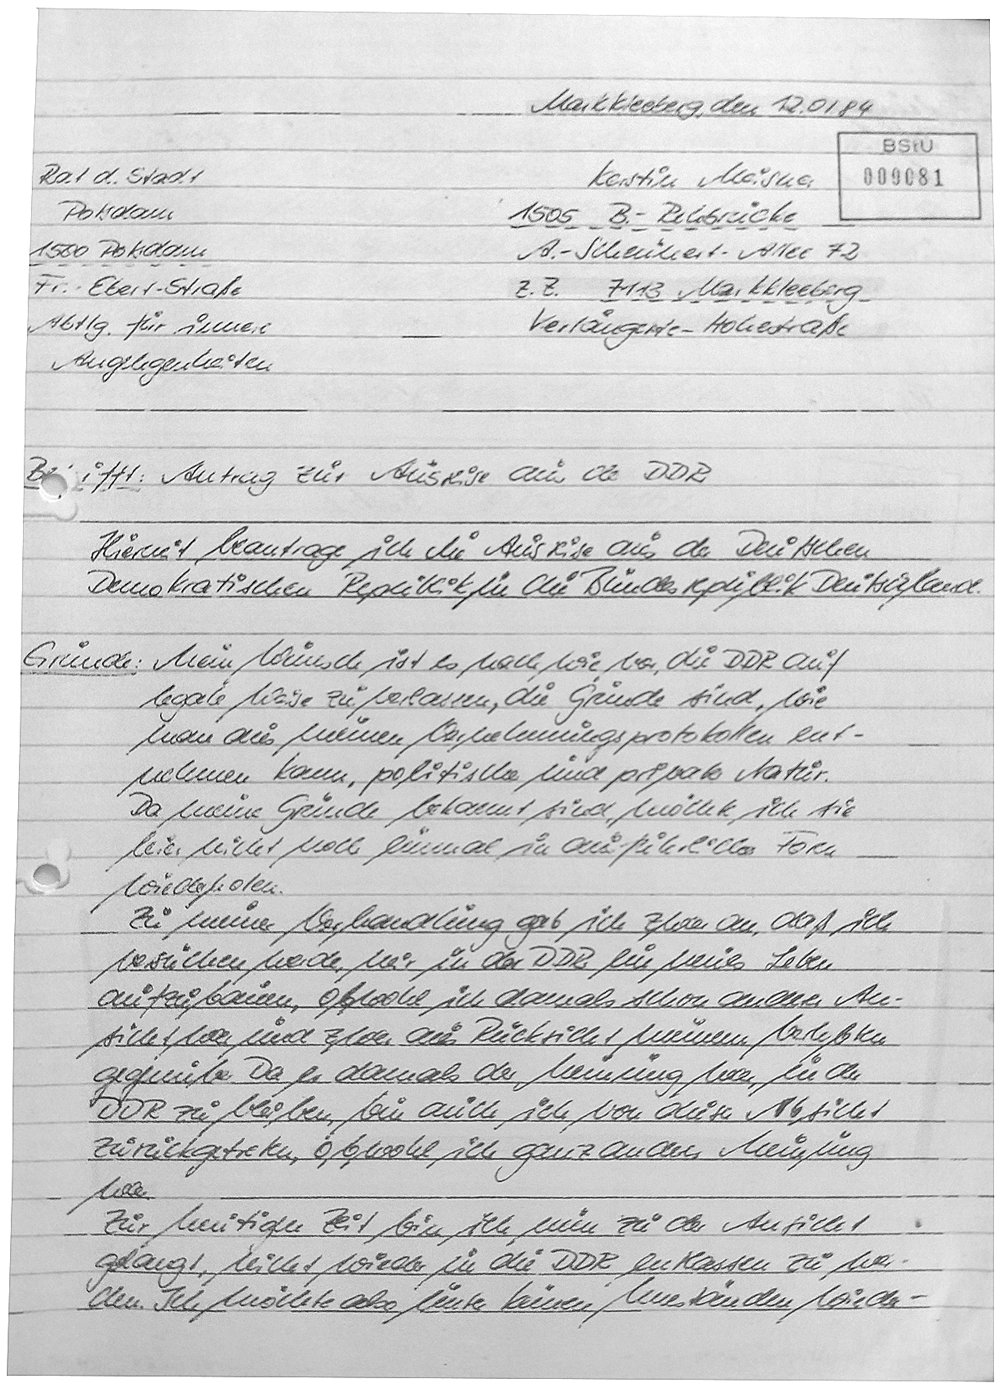 Markkleeberg, den 12.01 84
BStU
000081
Rat d. Stadt
Potsdam
1500 Potsdam
Fr.-Ebert-Straße
Abtlg. für innere
Angelegenheiten
Kerstin Meisner
1505 B.-Rehbrücke
A.-Scheunert-Allee 72
z.Z. 7113 Markkleeberg
Verlängerte-Hohestraße
Be ifft: Antrag zur Ausreise aus der DDR
Hiermit beantrage ich die Ausreise aus der Deutschen
Demokratischen Republik, in die Bundesrepublik Deutschland.
Gründe: Mein Wunsch ist es nach wie vor, die DDR auf
legale Weise zu verlassen, die Gründe sind, wie
man aus meinen Vernehmungsprotokollen ent-
nehmen kann, politischer und privater Natur.
Da meine Gründe bekannt sind, möchte ich sie
hier nicht noch einmal in ausführlicher Form
wiederholen.
Zu meiner Verhandlung gab ich zwar an, daß ich
versuchen werde, mir in der DDR ein neues Leben
aufzubauen, obwohl ich damals schon anderer An-
sicht war und zwar aus Rücksicht meinem Verlobten
gegenüber. Da er damals der Meinung war, in der
DDR zu bleiben, bin auch ich von dieser Absicht
zurückgetreten, obwohl ich ganz anderer Meinung
war.
Zur heutigen Zeit bin ich nun zu der Ansicht
gelangt, nicht wieder in die DDR entlassen zu wer-
den. Ich möchte also unter keinen Umständen wieder-